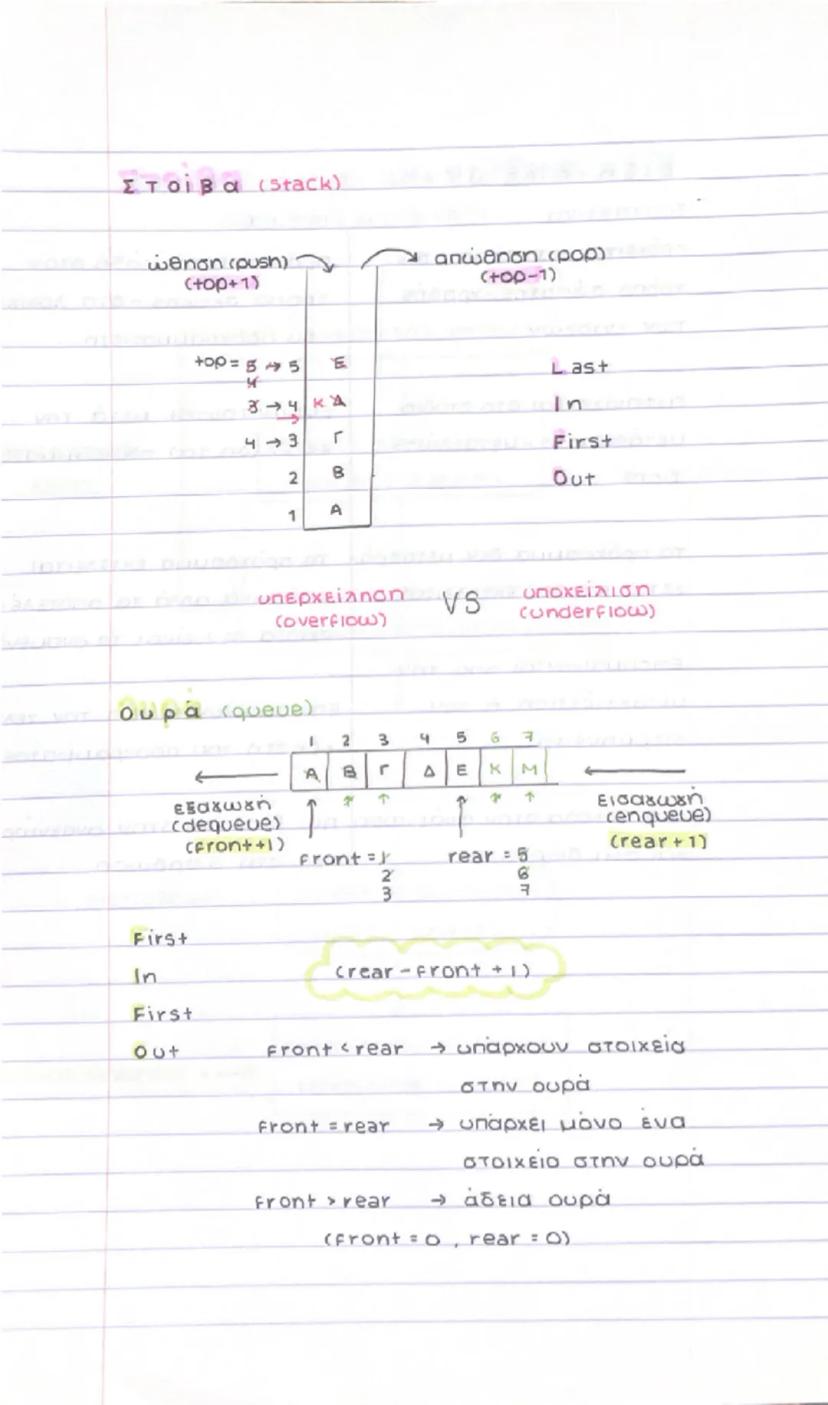 Στοίβα (stack)
ώθηση (push) απώθηση (pop)
(top+1) (top-1)
top = 5 → 5 Ε Last
4
3 → 4 Κ Δ In
4 → 3 Γ First
2 Β Out
1 Α
υπερχείληση VS υποχείλιση
(overflow) (underflow)
Ουρά (queue)
1 2 3 4 5 6 7
Α Β Γ Δ Ε Κ Μ
εξαγωγή εισαγωγή
(dequeue) (enqueue)
(front+1) (rear+1)
front = 1 rear = 5
2 6
3 7
First
In (rear - front + 1)
First
Out front < rear → υπάρχουν στοιχεία
στην ουρά
front = rear → υπάρχει μόνο ένα
στοιχείο στην ουρά
front > rear → άδεια ουρά
(front = 0, rear = 0)